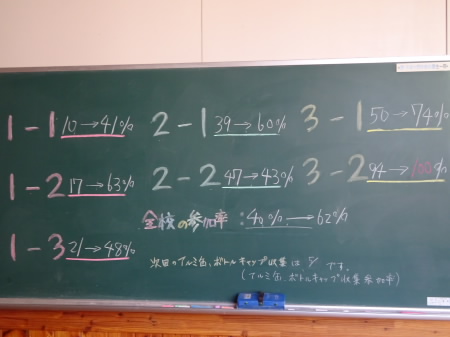 1-1 10→41% 2-1 39→60% 3-1 50→74%
1-2 17→63% 2-2 47→43% 3-2 94→100%
全校の参加率:40%→62%
1-3 21→48%
次回のアルミ缶、ボトルキャップ収集は です。
(アルミ缶、ボトルキャップ収集参加率)